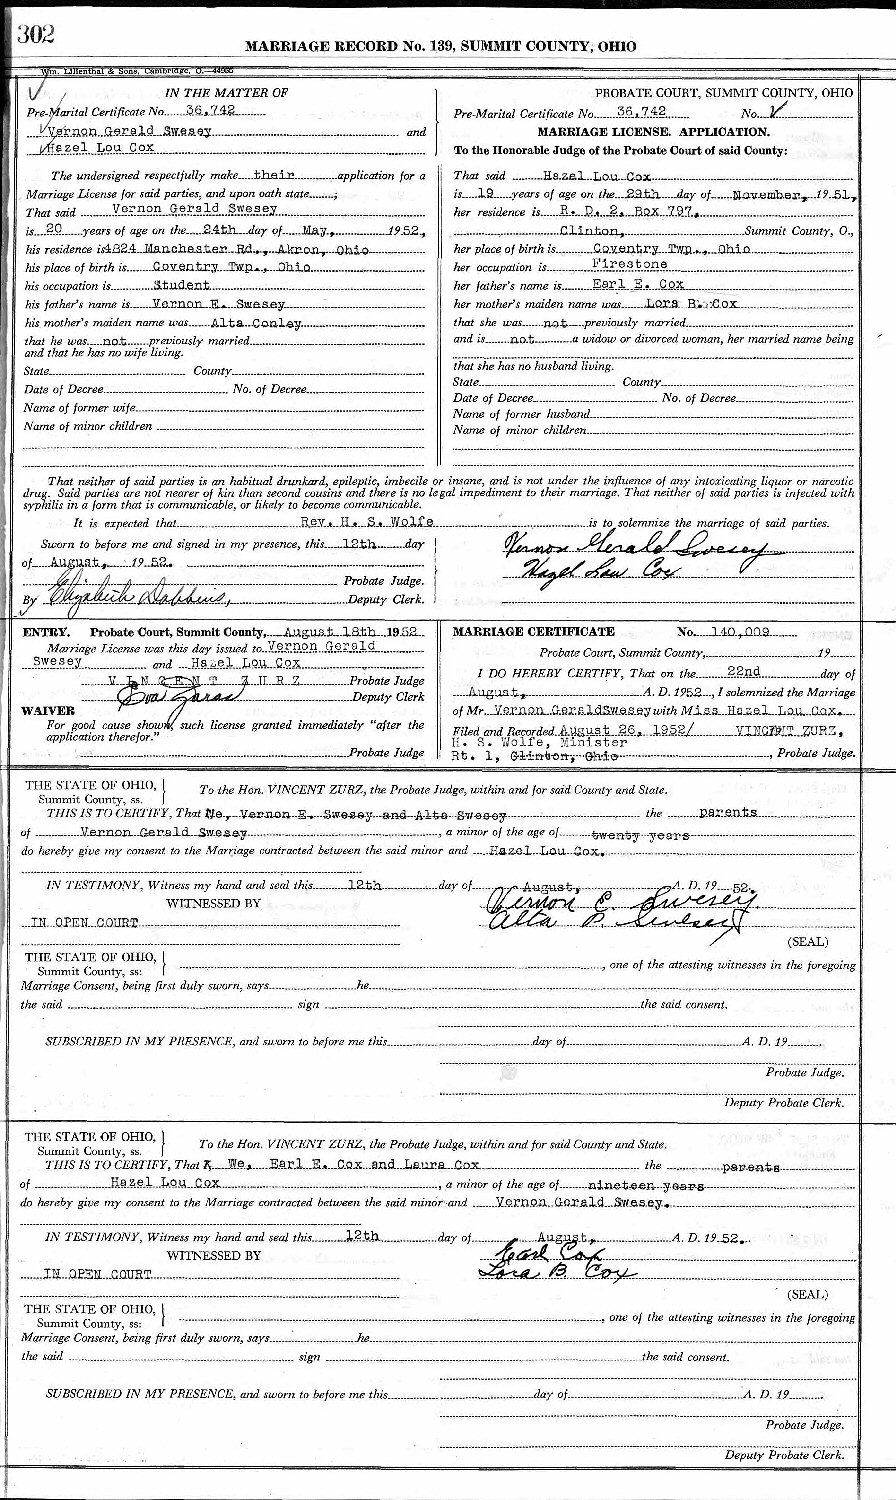 302
MARRIAGE RECORD No. 139, SUMMIT COUNTY, OHIO
Wm. Lilienthal & Sons, Cambridge, O.—44986
IN THE MATTER OF
Pre-Marital Certificate No. 36,742
Vernon Gerald Swesey and
Hazel Lou Cox
The undersigned respectfully make their application for a
Marriage License for said parties, and upon oath state ;
That said Vernon Gerald Swesey
is 20 years of age on the 24th day of May, 1952,
his residence is 4824 Manchester Rd., Akron, Ohio
his place of birth is Coventry Twp., Ohio
his occupation is Student
his father's name is Vernon E. Swesey
his mother's maiden name was Alta Conley
that he was not previously married
and that he has no wife living.
State County
Date of Decree No. of Decree
Name of former wife
Name of minor children
PROBATE COURT, SUMMIT COUNTY, OHIO
Pre-Marital Certificate No. 36,742 No.
MARRIAGE LICENSE. APPLICATION.
To the Honorable Judge of the Probate Court of said County:
That said Hazel Lou Cox
is 19 years of age on the 29th day of November, 1951,
her residence is R. D. 2, Box 797,
Clinton, Summit County, O.,
her place of birth is Coventry Twp., Ohio
her occupation is Firestone
her father's name is Earl E. Cox
her mother's maiden name was Lora B. Cox
that she was not previously married
and is not a widow or divorced woman, her married name being
that she has no husband living.
State County
Date of Decree No. of Decree
Name of former husband
Name of minor children
That neither of said parties is an habitual drunkard, epileptic, imbecile or insane, and is not under the influence of any intoxicating liquor or narcotic
drug. Said parties are not nearer of kin than second cousins and there is no legal impediment to their marriage. That neither of said parties is infected with
syphilis in a form that is communicable, or likely to become communicable.
It is expected that Rev. H. S. Wolfe is to solemnize the marriage of said parties.
Sworn to before me and signed in my presence, this 12th day
of August, 1952.
Probate Judge.
By Elizabeth Dobbins, Deputy Clerk.
Vernon Gerald Swesey
Hazel Lou Cox
ENTRY. Probate Court, Summit County, August 18th 1952
Marriage License was this day issued to Vernon Gerald
Swesey and Hazel Lou Cox
VINCENT ZURZ Probate Judge
Eva Deputy Clerk
WAIVER
For good cause shown, such license granted immediately "after the
application therefor."
Probate Judge
MARRIAGE CERTIFICATE No. 140,009
Probate Court, Summit County, 19
I DO HEREBY CERTIFY, That on the 22nd day of
August, A. D. 1952, I solemnized the Marriage
of Mr. Vernon Gerald Swesey with Miss Hazel Lou Cox.
Filed and Recorded August 26, 1952/ VINCENT ZURZ,
H. S. Wolfe, Minister
Rt. 1, Clinton, Ohio , Probate Judge.
THE STATE OF OHIO,
Summit County, ss.
To the Hon. VINCENT ZURZ, the Probate Judge, within and for said County and State.
THIS IS TO CERTIFY, That We, Vernon E. Swesey and Alta Swesey the parents
of Vernon Gerald Swesey , a minor of the age of twenty years
do hereby give my consent to the Marriage contracted between the said minor and Hazel Lou Cox.
IN TESTIMONY, Witness my hand and seal this 12th day of August, A. D. 19 52.
WITNESSED BY
Vernon E. Swesey
IN OPEN COURT
Alta B. Swesey
(SEAL)
THE STATE OF OHIO,
Summit County, ss:
, one of the attesting witnesses in the foregoing
Marriage Consent, being first duly sworn, says he
the said sign the said consent.
SUBSCRIBED IN MY PRESENCE, and sworn to before me this day of A. D. 19
Probate Judge.
Deputy Probate Clerk.
THE STATE OF OHIO,
Summit County, ss.
To the Hon. VINCENT ZURZ, the Probate Judge, within and for said County and State.
THIS IS TO CERTIFY, That We, Earl E. Cox and Laura Cox the parents
of Hazel Lou Cox , a minor of the age of nineteen years
do hereby give my consent to the Marriage contracted between the said minor and Vernon Gerald Swesey.
IN TESTIMONY, Witness my hand and seal this 12th day of August, A. D. 19 52.
WITNESSED BY
Earl Cox
IN OPEN COURT
Lora B. Cox
(SEAL)
THE STATE OF OHIO,
Summit County, ss:
, one of the attesting witnesses in the foregoing
Marriage Consent, being first duly sworn, says he
the said sign the said consent.
SUBSCRIBED IN MY PRESENCE, and sworn to before me this day of A. D. 19
Probate Judge.
Deputy Probate Clerk.